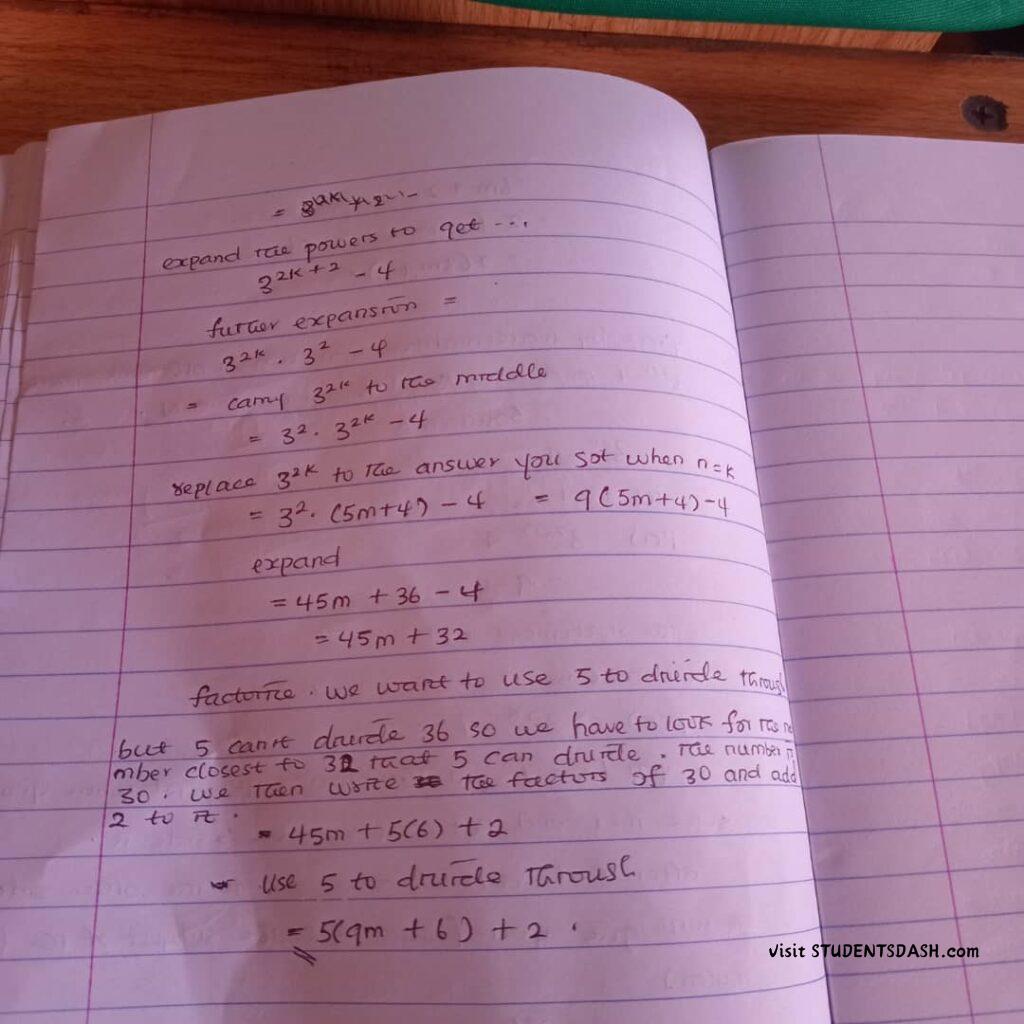 =
expand the powers to get ...
3^{2k+2} - 4
further expansion =
3^{2k} . 3^2 - 4
= carry 3^{2k} to the middle
= 3^2 . 3^{2k} - 4
replace 3^{2k} to the answer you got when n=k
= 3^2 . (5m+4) - 4 = 9(5m+4)-4
expand
= 45m + 36 - 4
= 45m + 32
factorize. we want to use 5 to divide through
but 5 can't divide 36 so we have to look for the
mber closest to 32 that 5 can divide. The number
30. we then write the factors of 30 and add
2 to it.
= 45m + 5(6) + 2
use 5 to divide through
= 5(9m + 6) + 2 .
visit STUDENTSDASH.com